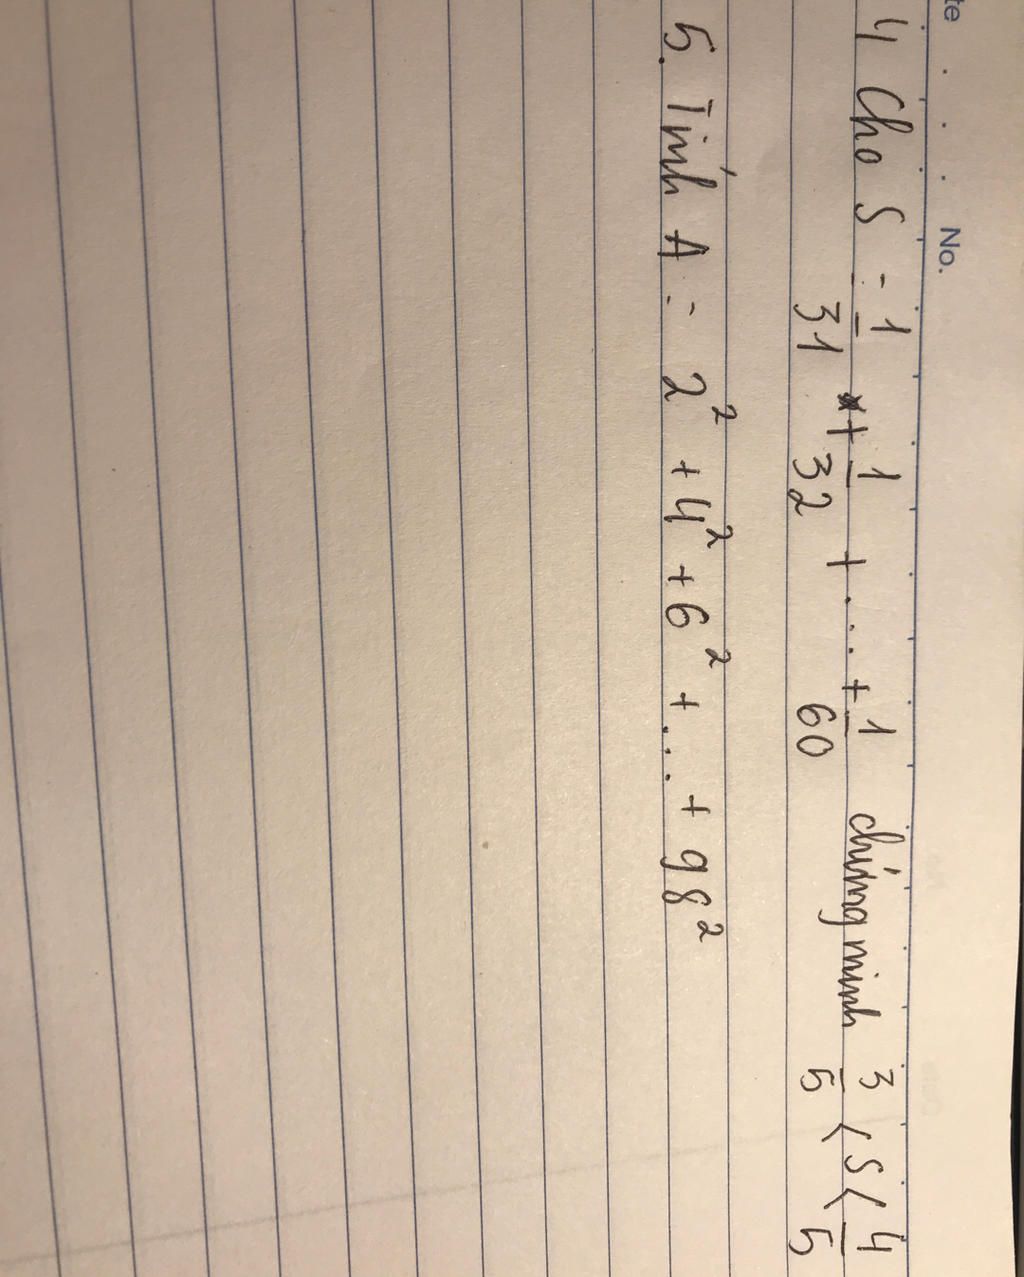 te . . . No.
4 Cho S = 1/31 + 1/32 + ... + 1/60 chứng minh 3/5 < S < 4/5
5. Tính A = 2² + 4² + 6² + ... + 98²